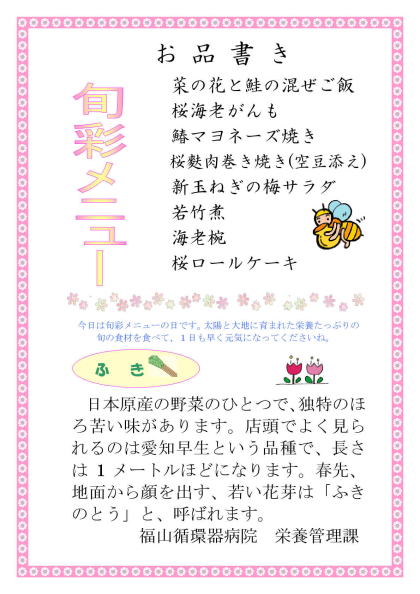 お品書き
旬彩メニュー
菜の花と鮭の混ぜご飯
桜海老がんも
鰆マヨネーズ焼き
桜麩肉巻き焼き(空豆添え)
新玉ねぎの梅サラダ
若竹煮
海老椀
桜ロールケーキ
今日は旬彩メニューの日です。太陽と大地に育まれた栄養たっぷりの
旬の食材を食べて、１日も早く元気になってくださいね。
ふき
日本原産の野菜のひとつで、独特のほ
ろ苦い味があります。店頭でよく見ら
れるのは愛知早生という品種で、長さ
は 1 メートルほどになります。春先、
地面から顔を出す、若い花芽は「ふき
のとう」と、呼ばれます。
福山循環器病院　栄養管理課